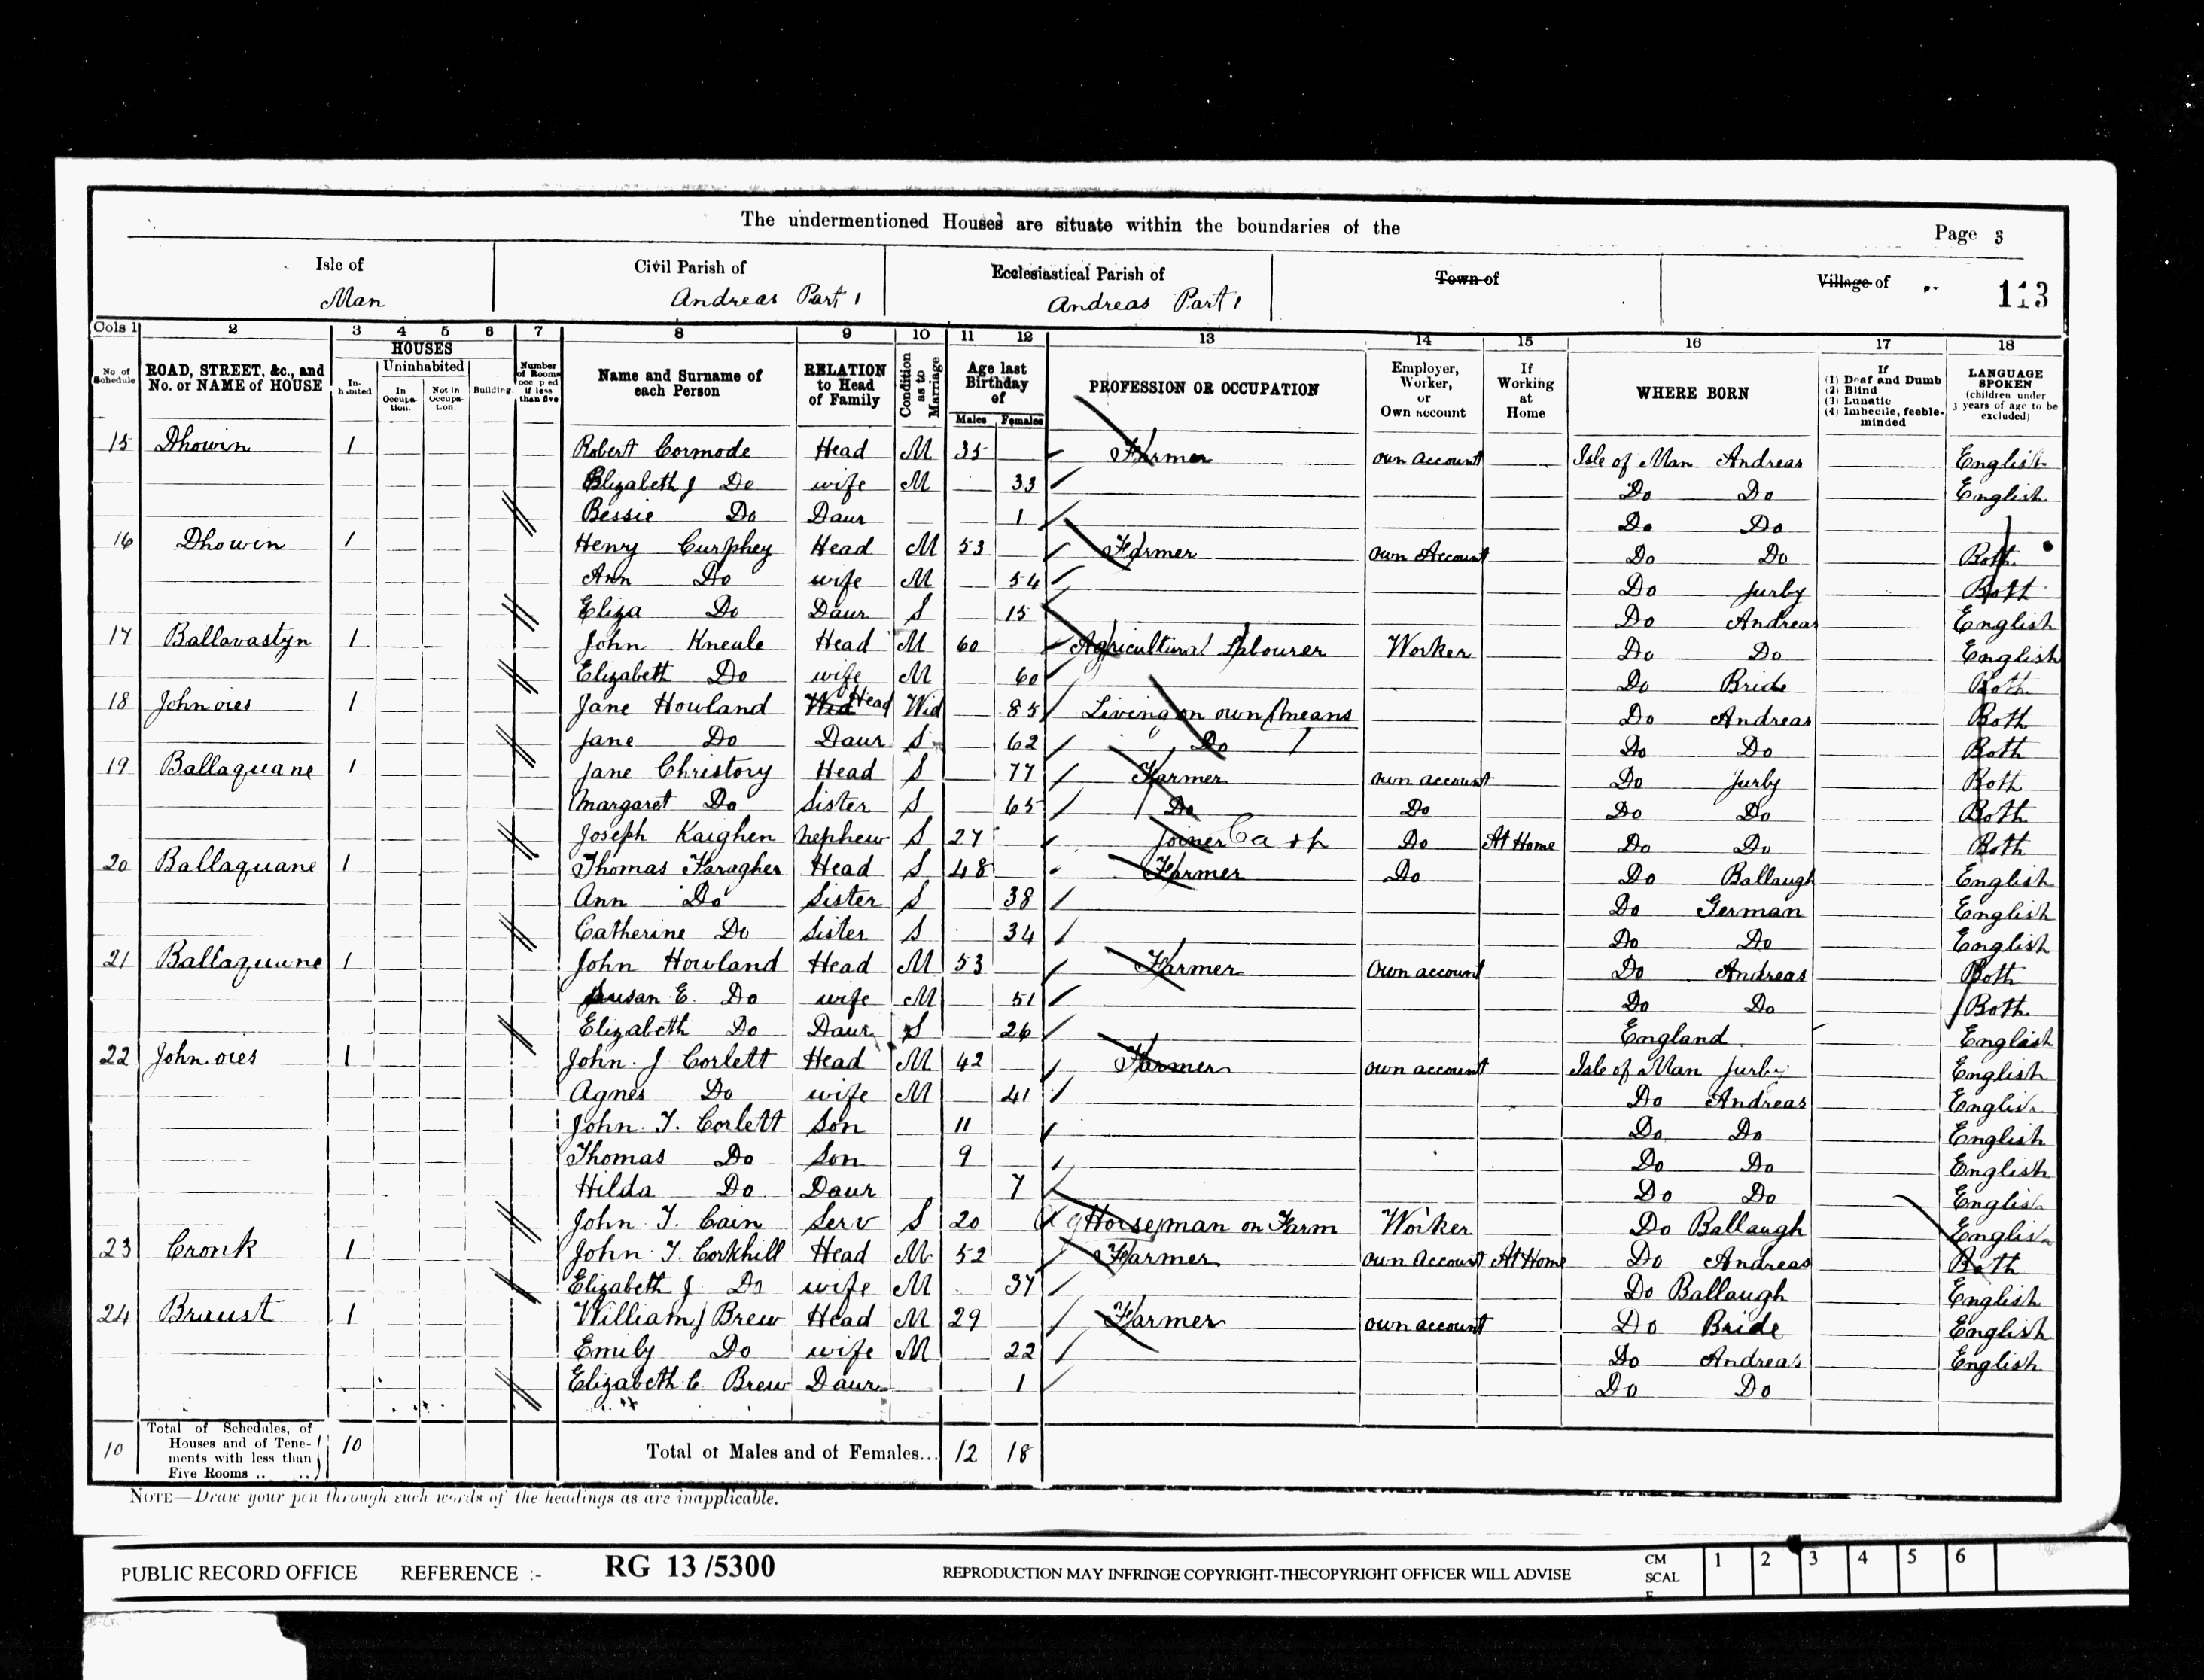 The undermentioned Houses are situate within the boundaries of the
Page 3
Isle of Civil Parish of Ecclesiastical Parish of Town of Village of
Man Andreas Part 1 Andreas Part 1 113
Cols 1 2 3 4 5 6 7 8 9 10 11 12 13 14 15 16 17 18
No of Schedule
ROAD, STREET, &c., and No. or NAME of HOUSE
HOUSES
In-habited
Uninhabited
In Occupa-tion.
Not in Occupa-tion.
Building.
Number of Rooms occupied if less than five
Name and Surname of each Person
RELATION to Head of Family
Condition as to Marriage
Age last Birthday of
Males Females
PROFESSION OR OCCUPATION
Employer, Worker, or Own account
If Working at Home
WHERE BORN
If
(1) Deaf and Dumb
(2) Blind
(3) Lunatic
(4) Imbecile, feeble-minded
LANGUAGE SPOKEN (children under 3 years of age to be excluded)
15 Dhowin 1 Robert Cormode Head M 35 Farmer own account Isle of Man Andreas English
Elizabeth J Do wife M 33 Do Do English
Bessie Do Daur 1 Do Do
16 Dhowin 1 Henry Curphey Head M 53 Farmer own Account Do Do Both
Ann Do wife M 54 Do Jurby Both
Eliza Do Daur S 15 Do Andreas English
17 Ballavastyn 1 John Kneale Head M 60 Agricultural Labourer Worker Do Do English
Elizabeth Do wife M 60 Do Bride Both
18 John ories 1 Jane Howland Wid Head Wid 85 Living on own means Do Andreas Both
Jane Do Daur S 62 Do Do Do Both
19 Ballaquane 1 Jane Christory Head S 77 Farmer own account Do Jurby Both
Margaret Do Sister S 65 Do Do Do Do Both
Joseph Kaighen nephew S 27 Joiner Do At Home Do Do Both
20 Ballaquane 1 Thomas Faragher Head S 48 Farmer Do Do Ballaugh English
Ann Do Sister S 38 Do German English
Catherine Do Sister S 34 Do Do English
21 Ballaquane 1 John Howland Head M 53 Farmer own account Do Andreas Both
Susan E. Do wife M 51 Do Do Both
Elizabeth Do Daur S 26 England English
22 John ories 1 John J Corlett Head M 42 Farmer own account Isle of Man Jurby English
Agnes Do wife M 41 Do Andreas English
John T. Corlett Son 11 Do Do English
Thomas Do Son 9 Do Do English
Hilda Do Daur 7 Do Do English
John T. Cain Serv S 20 Ag Horseman on Farm Worker Do Ballaugh English
23 Cronk 1 John T. Corkhill Head M 52 Farmer own account At Home Do Andreas Both
Elizabeth J Do wife M 37 Do Ballaugh English
24 Bruust 1 William J Brew Head M 29 Farmer own account Do Bride English
Emily Do wife M 22 Do Andreas English
Elizabeth C Brew Daur 1 Do Do
10 Total of Schedules, of Houses and of Tenements with less than Five Rooms .. ..) 10 Total of Males and of Females... 12 18
NOTE—Draw your pen through such words of the headings as are inapplicable.
PUBLIC RECORD OFFICE REFERENCE :- RG 13 /5300 REPRODUCTION MAY INFRINGE COPYRIGHT-THECOPYRIGHT OFFICER WILL ADVISE CM SCAL E 1 2 3 4 5 6